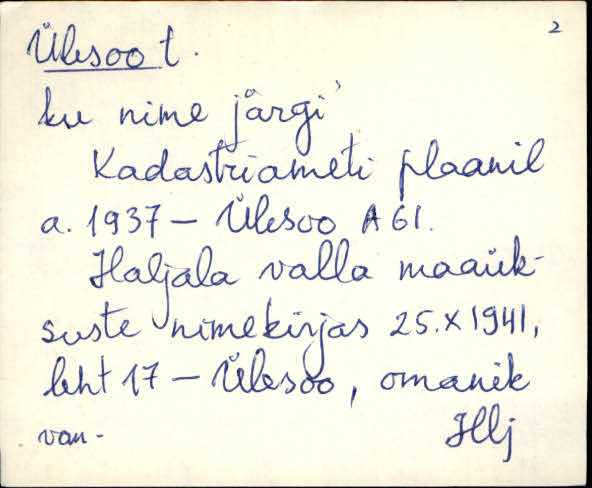 2
Ülesoo t.
ku nime järgi'
Kadastriameti plaanil
a. 1937 – Ülesoo A 61.
Haljala valla maaük-
suste nimekirjas 25.X 1941,
leht 17 – Ülesoo, omanik
van- Hlj